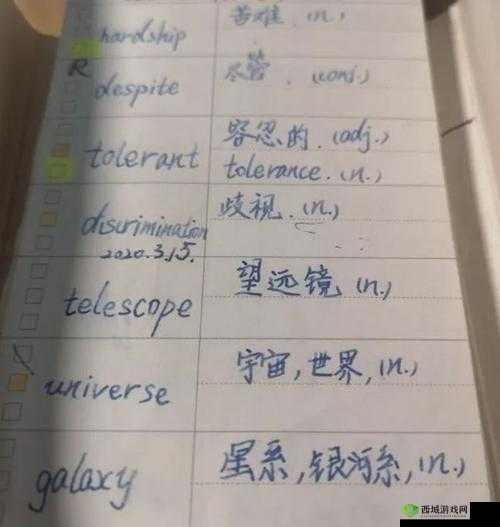 hardship 苦难. (n.)
R
despite 尽管. (conj.)
tolerant 容忍的. (adj.)
tolerance. (n.)
discrimination 歧视. (n.)
2020.3.15.
telescope 望远镜 (n.)
universe 宇宙, 世界, (n.)
galaxy 星系, 银河系, (n.)
西域游戏网